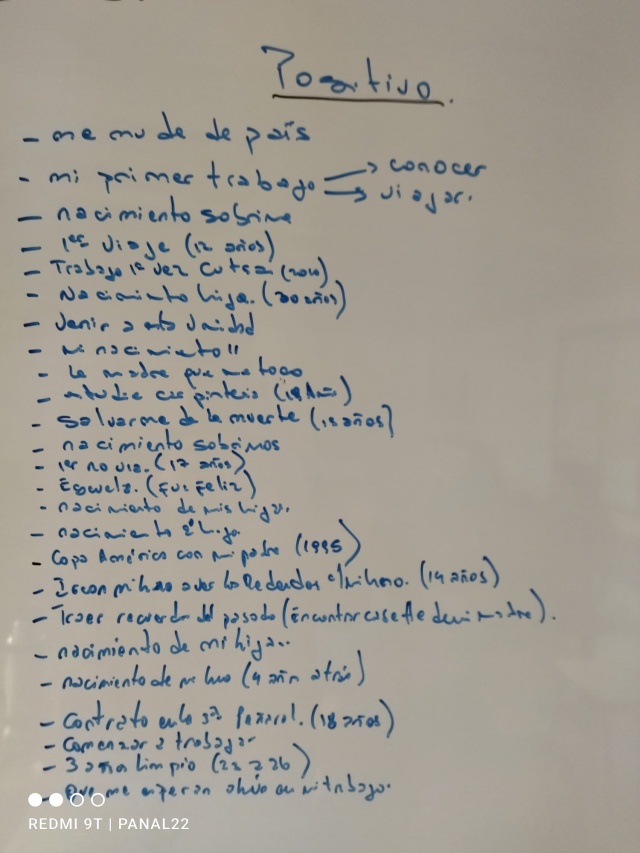 Positivo.
- me mude de país
- mi primer trabajo → conocer
→ viajar.
- nacimiento sobrina
- 1er viaje (12 años)
- Trabajo 1ª vez (2010)
- Nacimiento hija. (20 años)
- Venir a esta unidad
- mi nacimiento!!
- La madre que me toco
- estudie carpinteria (18 Años)
- Salvarme de la muerte (15 años)
- nacimiento sobrinos
- 1er novia. (17 años)
- Escuela. (Fui Feliz)
- nacimiento de mis hijas.
- nacimiento 2ª hija
- Copa América con mi padre (1995)
- Ir con mi (14 años)
- Traer recuerdos del pasado (Encontrar casette de mi madre).
- nacimiento de mi hija..
- nacimiento de mi hijo (4 años atrás)
- Contrato en la 3ª Peñarol. (18 años)
- Comenzar a trabajar
- 3 años limpio (23 a 26)
- Que me esperan en mi trabajo.
REDMI 9T | PANAL22